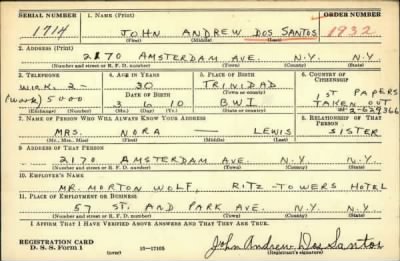 SERIAL NUMBER 1. NAME (Print) ORDER NUMBER
1714 JOHN ANDREW DOS SANTOS 1932
(First) (Middle) (Last)
2. ADDRESS (Print)
2170 AMSTERDAM AVE. N.Y. N.Y.
(Number and street or R. F. D. number) (Town) (County) (State)
3. TELEPHONE 4. AGE IN YEARS 5. PLACE OF BIRTH 6. COUNTRY OF CITIZENSHIP
WICK. 2- 30 TRINIDAD 1ST PAPERS
DATE OF BIRTH TAKEN OUT
(WORK) 5000 3 6 10 BWI #2-629366
(Exchange) (Number) (Mo.) (Day) (Yr.) (State or country)
7. NAME OF PERSON WHO WILL ALWAYS KNOW YOUR ADDRESS 8. RELATIONSHIP OF THAT PERSON
MRS. NORA — LEWIS SISTER
(Mr., Mrs., Miss) (First) (Middle) (Last)
9. ADDRESS OF THAT PERSON
2170 AMSTERDAM AVE. N.Y. N.Y.
(Number and street or R. F. D. number) (Town) (County) (State)
10. EMPLOYER'S NAME
MR. MORTON WOLF, RITZ-TOWERS HOTEL
11. PLACE OF EMPLOYMENT OR BUSINESS
57 ST. AND PARK AVE. N.Y. N.Y.
(Number and street or R. F. D. number) (Town) (County) (State)
I AFFIRM THAT I HAVE VERIFIED ABOVE ANSWERS AND THAT THEY ARE TRUE.
REGISTRATION CARD
D. S. S. Form 1 (over) 16-17105 John Andrew Dos Santos
(Registrant's signature)